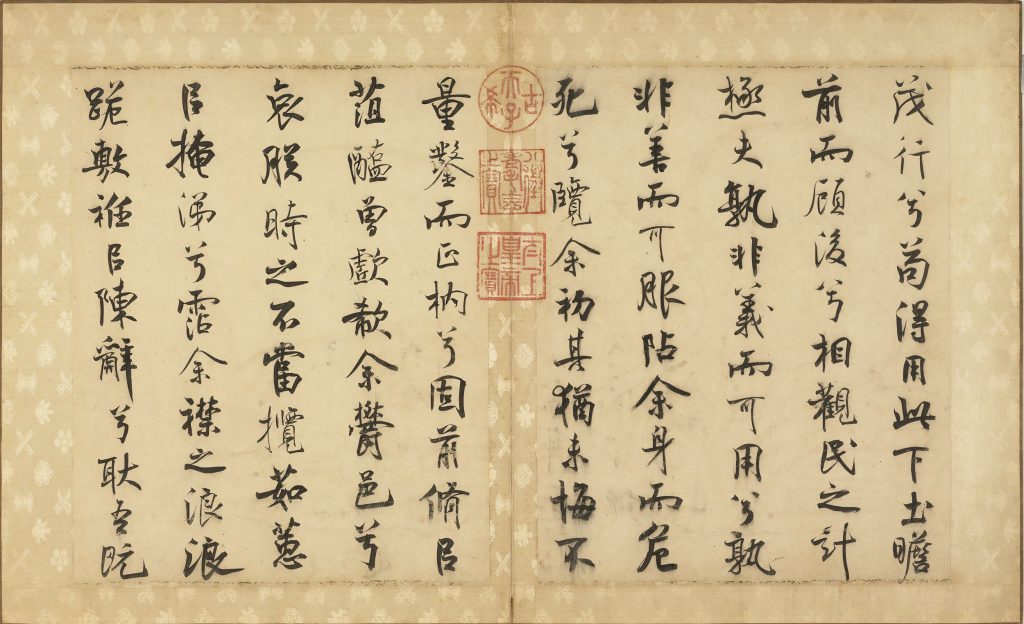 茂行兮苟得用此下土瞻
前而顧後兮相觀民之計
極夫孰非義而可用兮孰
非善而可服阽余身而危
死兮覽余初其猶未悔不
古希天子
八徵耄念之寶
太上皇帝之寶
量鑿而正枘兮固前脩㠯
菹醢曾歔欷余鬱邑兮
哀朕時之不當攬茹蕙
㠯掩涕兮霑余襟之浪浪
跪敷衽㠯陳辭兮耿吾既